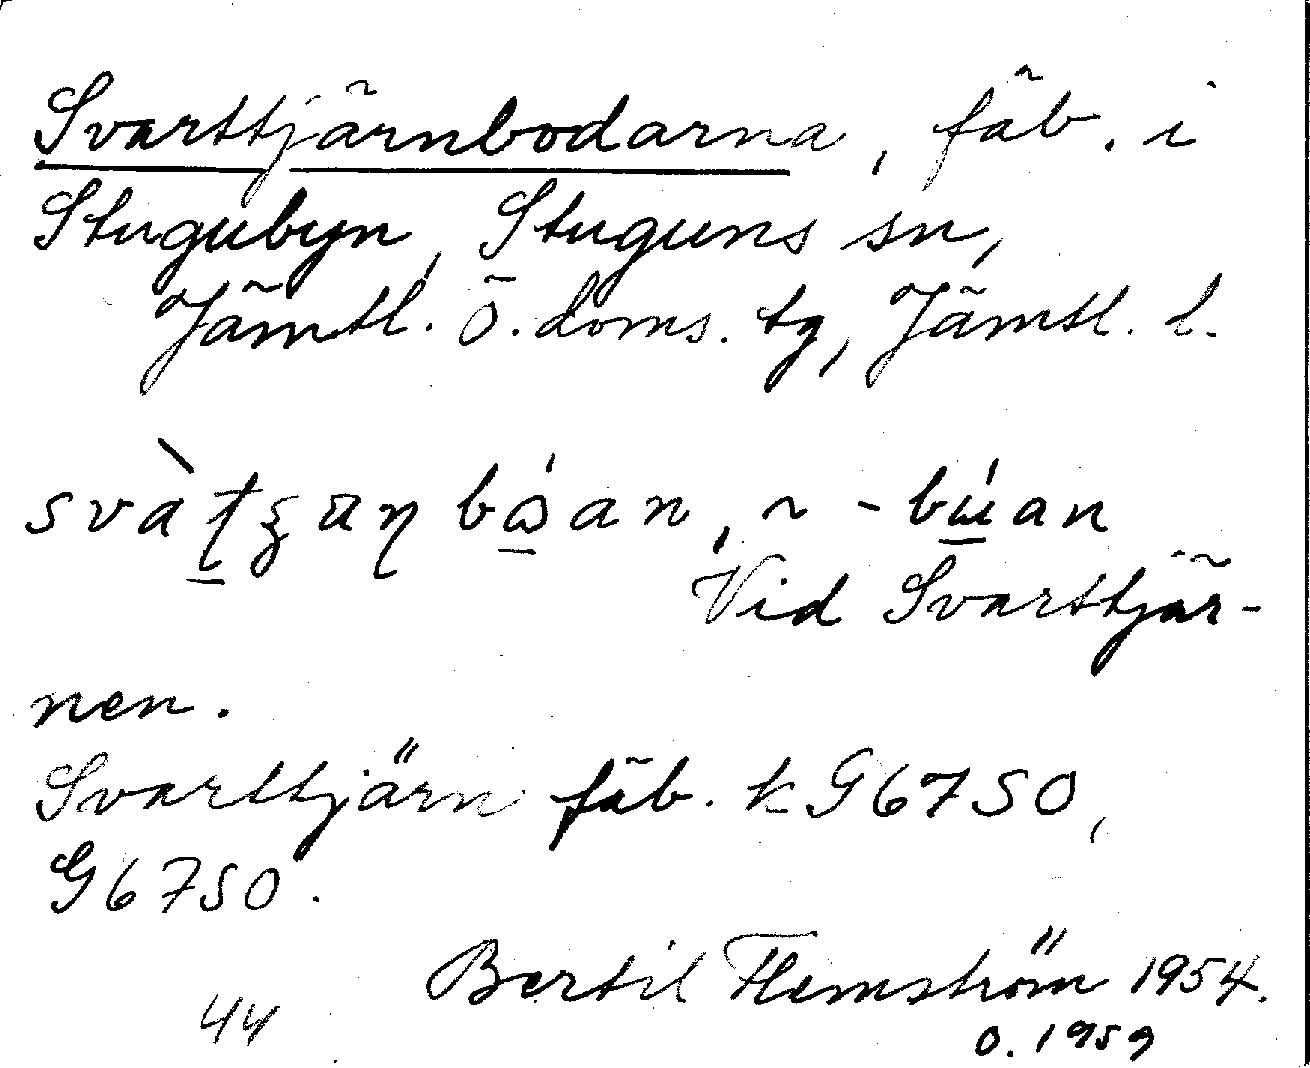 Svarttjärnbodarna, fäb. i
Stugubyn, Stuguns sn,
Jämtl. Ö. doms. tg, Jämtl. l.
Vid Svarttjär-
nen.
Svarttjärn fäb. k G67SO,
G67SO.
Bertil Flemström 1954.
44 O. 1959